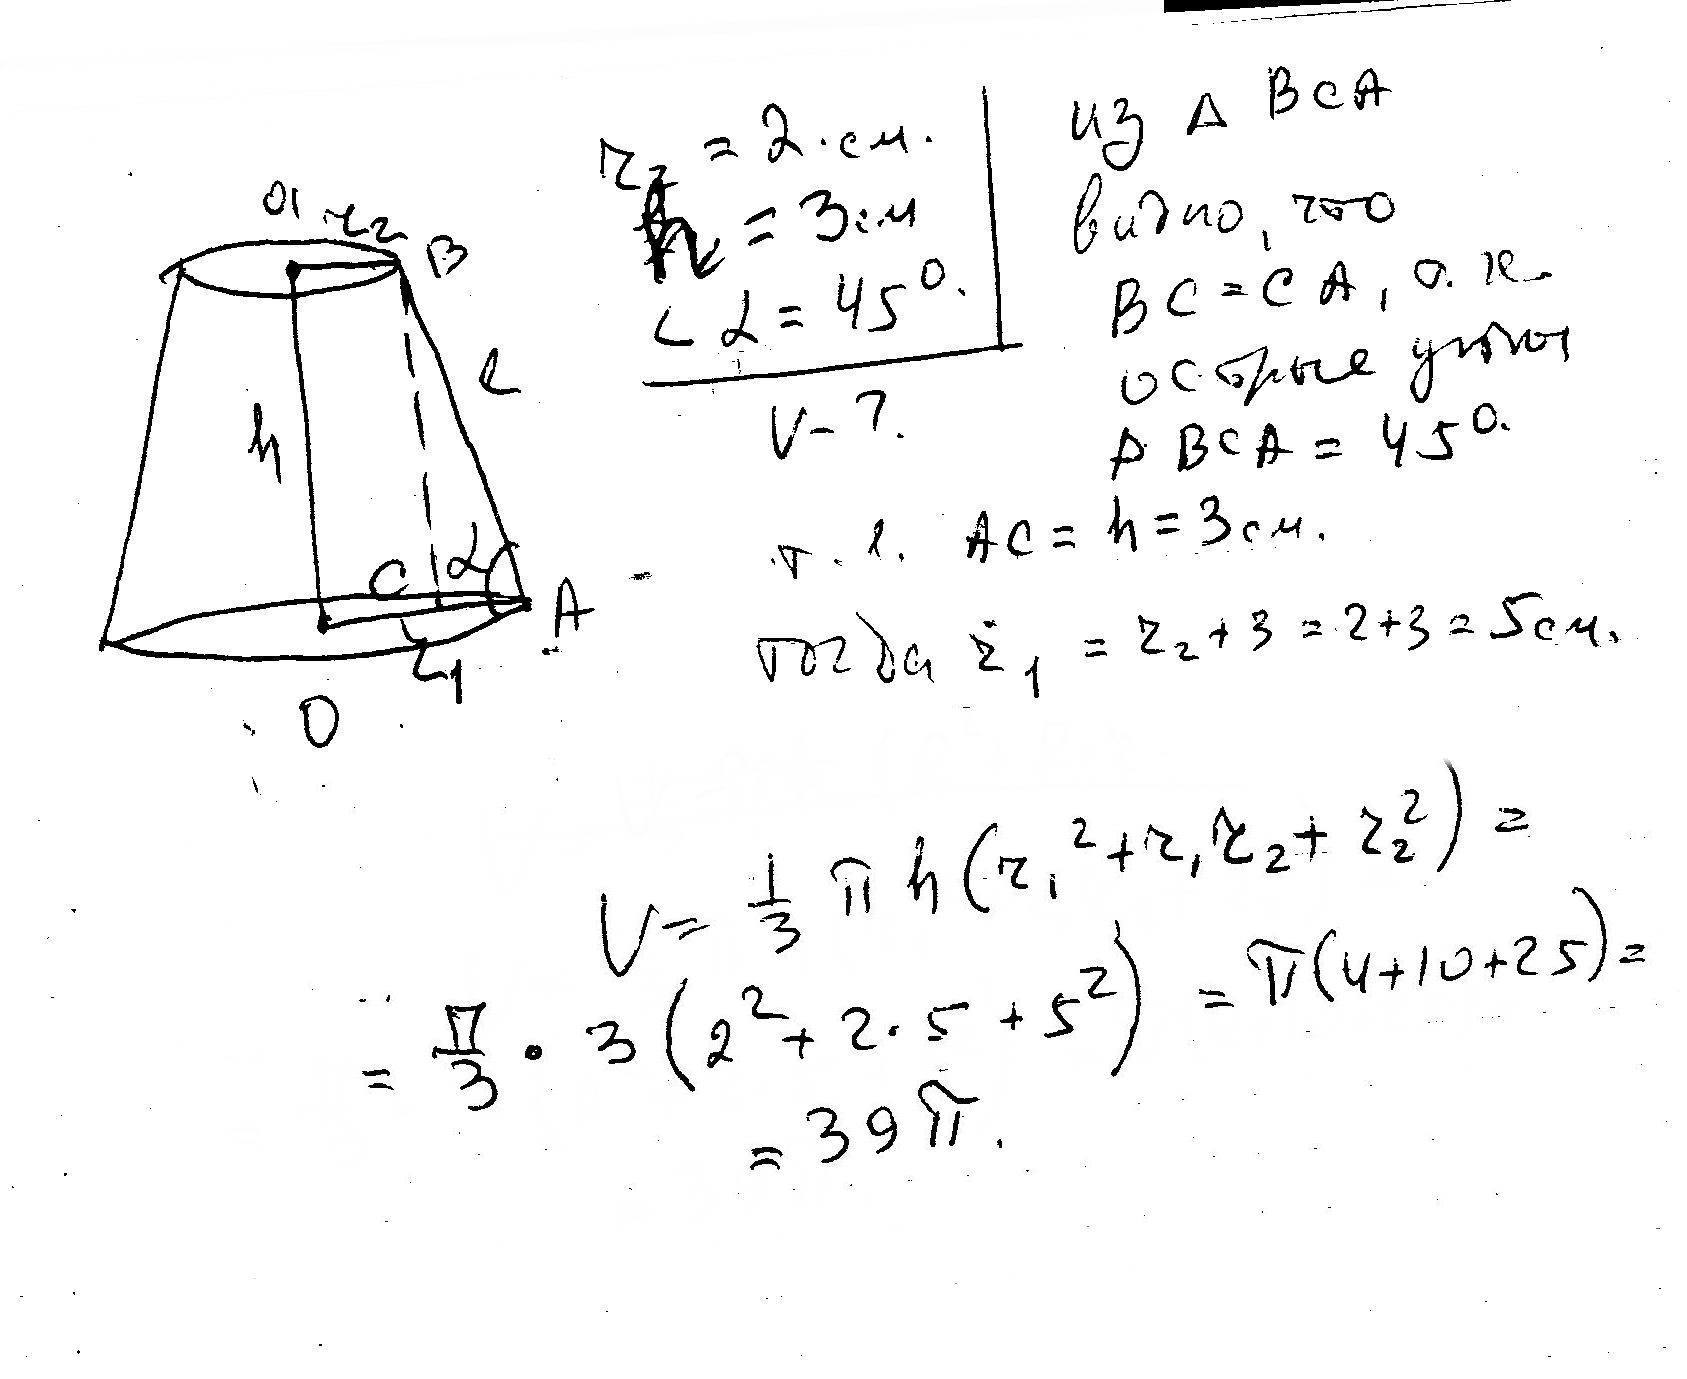 O1 r2 B
h
l
C α A
r1
O
r2 = 2 см.
h = 3 см
∠ α = 45°.
V - ?.
из Δ BCA
видно, что
BC = CA, т. к.
острые углы
Δ BCA = 45°.
т. е. AC = h = 3 см.
тогда r1 = r2 + 3 = 2 + 3 = 5 см.
V = 1/3 π h (r1² + r1 r2 + r2²) =
= π/3 · 3 (2² + 2 · 5 + 5²) = π (4 + 10 + 25) =
= 39 π.